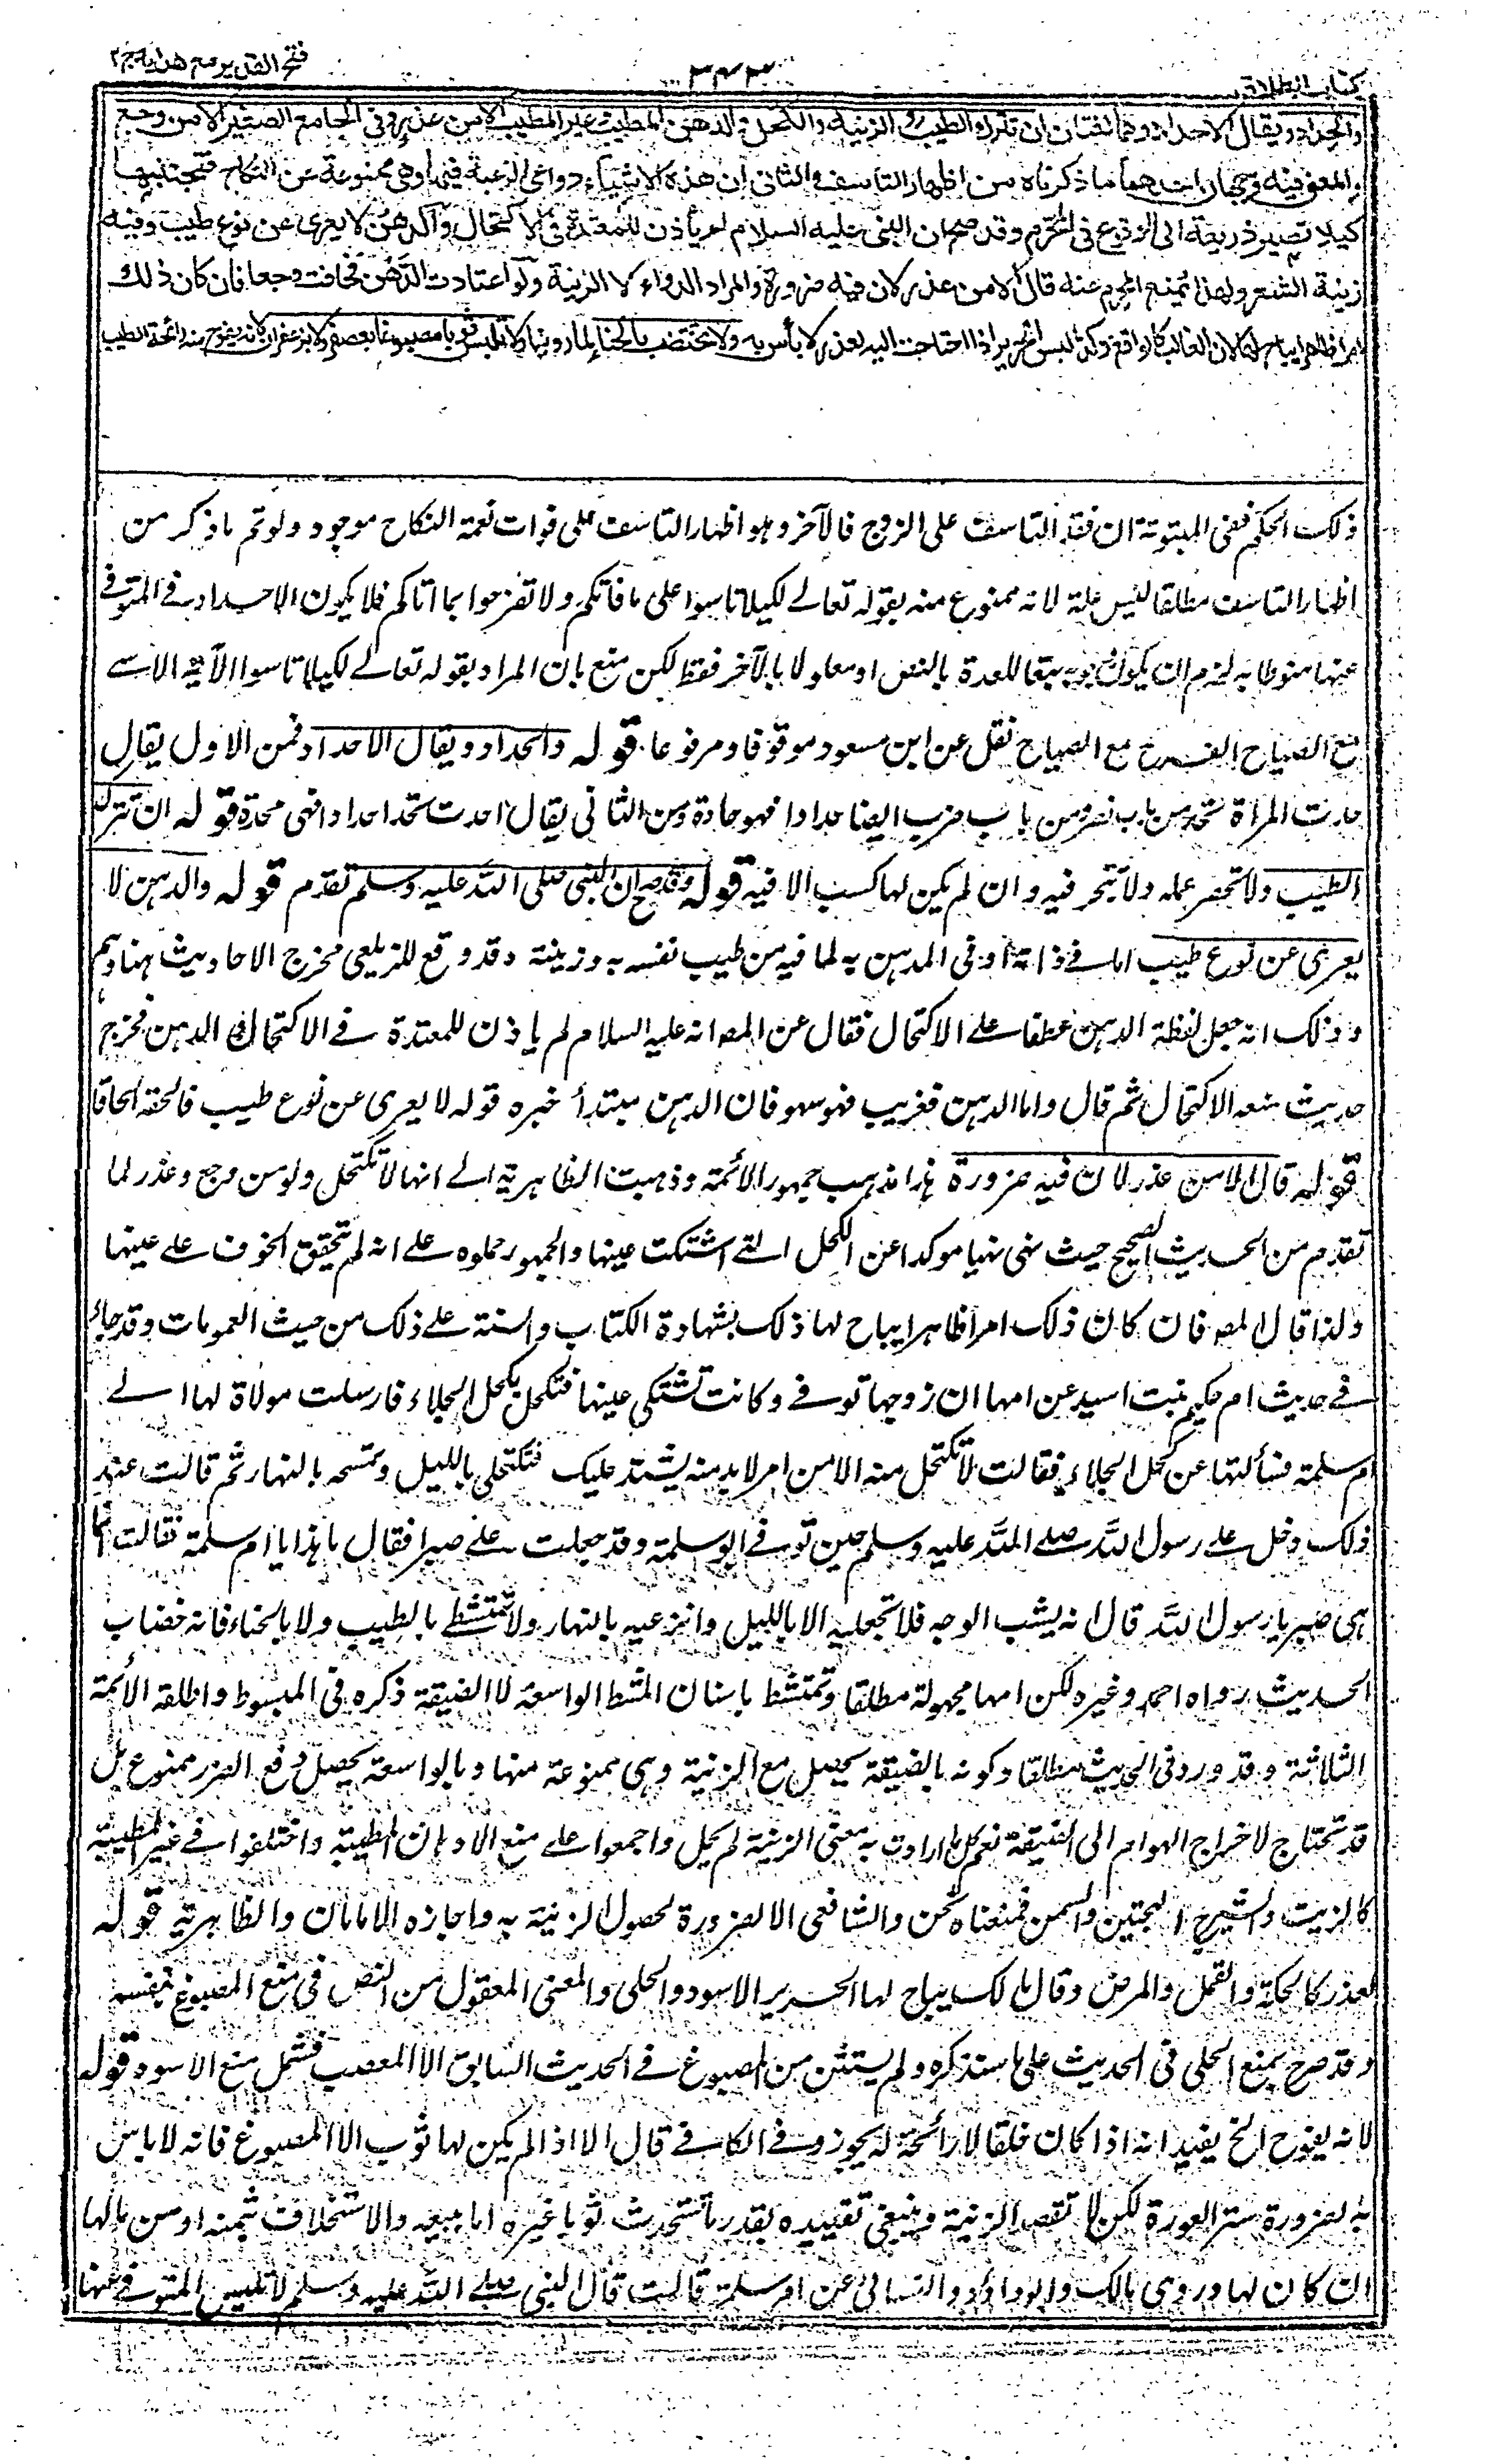 كتاب الطلاق
٣٤٢
فتح القدير مع هدايه ج٢
والحداد ويقال الاحداد وهما لغتان ان تترك الطيب والزينة والكحل والدهن المطيب وغير المطيب الا من عذر وفي الجامع الصغير الا من وجع
والمعنى فيه وجهان احدهما ما ذكرناه من اظهار التاسف والثاني ان هذه الاشياء دواعي الرغبة فيها وهي ممنوعة عن النكاح فتجتنبها
كيلا تصير ذريعة الى الوقوع في المحرم وقد صح ان النبي عليه السلام لم يأذن للمعتدة في الاكتحال والدهن لا يعرى عن نوع طيب وفيه
زينة الشعر ولهذا يمنع المحرم عنه قال الا من عذر لان فيه ضرورة والمراد الدواء لا الزينة ولو اعتادت الدهن فخافت وجعا فان كان ذلك
امرا ظاهرا يباح لها لان الغالب كالواقع وكذا لبس الحرير اذا احتاجت اليه لعذر لا بأس به ولا تختضب بالحناء لما روينا ولا تلبس ثوبا مصبوغا بعصفر ولا بزعفران لانه يفوح منه رائحة الطيب
ذلك الحكم ففي المبتوتة ان فقد التاسف على الزوج فالآخر وهو اظهار التاسف على فوات نعمة النكاح موجود ولو تم ما ذكر من
اظهار التاسف مطلقا ليس علة لانه ممنوع منه بقوله تعالى لكيلا تاسوا على ما فاتكم ولا تفرحوا بما اتاكم فلا يكون الاحداد في المتوفى
عنها منوطا به لزم ان يكون وجوبه تبعا للعدة بالنص او معلولا بالآخر فقط لكن منع بان المراد بقوله تعالى لكيلا تاسوا الآية الاسى
مع الصياح الفرح مع الصياح نقل عن ابن مسعود موقوفا ومرفوعا قوله والحداد ويقال الاحداد فمن الاول يقال
حدت المرأة تحد من باب نصر ومن باب ضرب ايضا حدادا فهو حادة ومن الثاني يقال احدت تحد احدادا فهى محدة قوله ان تترك
الطيب ولا تحضر عمله ولا تتجر فيه وان لم يكن لها كسب الا فيه قوله وقد صح ان النبي صلى الله عليه وسلم تقدم قوله والدهن لا
يعرى عن نوع طيب اما في ذاته او في المدهن به لما فيه من طيب نفسه به وزينته وقد وقع للزيلعي مخرج الاحاديث هنا وهم
وذلك انه جعل لفظة الدهن عطفا على الاكتحال فقال عن المصـ انه عليه السلام لم ياذن للمعتدة في الاكتحال والدهن فخرج
حديث منعه الاكتحال ثم قال واما الدهن فغريب فهو سهو فان الدهن مبتدأ خبره قوله لا يعرى عن نوع طيب فالحقه الحاقا
قوله قال الا من عذر لان فيه ضرورة هذا مذهب جمهور الأئمة وذهبت الظاهرية الى انها لا تكتحل ولو من وجع وعذر لما
تقدم من الحديث الصحيح حيث نهى نهيا موكدا عن الكحل التي اشتكت عينها والجمهور حملوه على انه لم يتحقق الخوف على عينها
ولذا قال المصـ فان كان ذلك امرا ظاهرا يباح لها ذلك بشهادة الكتاب والسنة على ذلك من حيث العمومات وقد جاء
في حديث ام حكيم بنت اسيد عن امها ان زوجها توفى وكانت تشتكي عينها فتكتحل بكحل الجلاء فارسلت مولاة لها الى
ام سلمة فسألتها عن كحل الجلاء فقالت لا تكتحل منه الا من امر لا بد منه يشتد عليك فتكتحلي بالليل وتمسحه بالنهار ثم قالت عند
ذلك دخل علي رسول الله صلى الله عليه وسلم حين توفى ابو سلمة وقد جعلت علي صبرا فقال ما هذا يا ام سلمة فقالت انما
هى صبر يا رسول الله قال انه يشب الوجه فلا تجعليه الا بالليل وانزعيه بالنهار ولا تمتشطي بالطيب ولا بالحناء فانه خضاب
الحديث رواه احمد وغيره لكن امها مجهولة مطلقا وتمتشط باسنان المشط الواسعة لا الضيقة ذكره في المبسوط واطلقه الأئمة
الثلاثة وقد ورد في الحديث مطلقا وكونه بالضيقة يحصل مع الزينة وهى ممنوعة منها وبالواسعة يحصل دفع الضرر ممنوع بل
قد تحتاج لاخراج الهوام الى الضيقة نعم كل ما ارادت به معنى الزينة لم يحل واجمعوا على منع الادهان المطيبة واختلفوا في غير المطيبة
كالزيت والشيرج البحتين والسمن فمنعناه نحن والشافعي الا لضرورة لحصول الزينة به واجازه الامامان والظاهرية قوله
لعذر كالحكة والقمل والمرض وقال مالك يباح لها الحرير الاسود والحلى والمعنى المعقول من النص في منع المصبوغ ينفسه
وقد صرح بمنع الحلى في الحديث على ما سنذكره ولم يستثن من المصبوغ في الحديث السابق الا العصب فشمل منع الاسود قوله
لانه يفوح الخ يفيد انه اذا كان خلقا لا رائحة له يجوز وفي الكافي قال الا اذا لم يكن لها ثوب الا المصبوغ فانه لا باس
به لضرورة ستر العورة لكن لا تقصد الزينة وينبغي تقييده بقدر ما تستحدث ثوبا غيره اما ببيعه والاستخلاف بثمنه او من مالها
ان كان لها وروى مالك وابو داؤد والنسائى عن ام سلمة قالت قال النبي صلى الله عليه وسلم لا تلبس المتوفى عنها